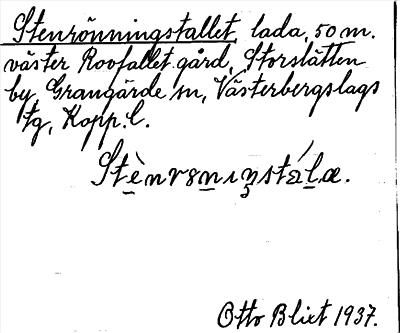 Stenrönningstallet, lada, 50 m.
väster Roofallet gård, Storslätten
by Grangärde sn, Västerbergslags
tg, Kopp. l.
Otto Blixt 1937.